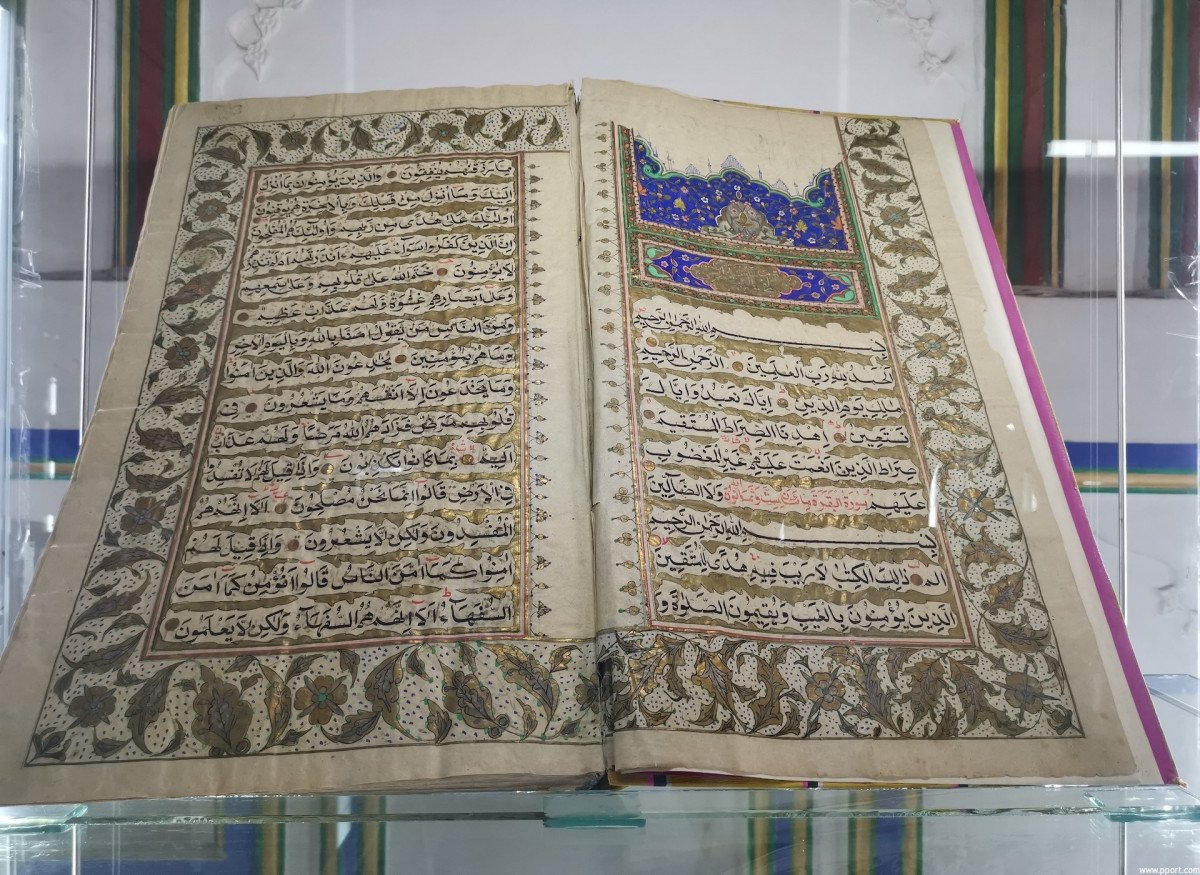 بِسْمِ اللهِ الرَّحْمٰنِ الرَّحِيمِ
اَلْحَمْدُ لِلّٰهِ رَبِّ الْعٰلَمِينَ الرَّحْمٰنِ الرَّحِيمِ
مٰلِكِ يَوْمِ الدِّينِ اِيَّاكَ نَعْبُدُ وَاِيَّاكَ
نَسْتَعِينُ اِهْدِنَا الصِّرَاطَ الْمُسْتَقِيمَ
صِرَاطَ الَّذِينَ اَنْعَمْتَ عَلَيْهِمْ غَيْرِ الْمَغْضُوبِ
عَلَيْهِمْ سورة البقرة وَلَا الضَّالِّينَ
بِسْمِ اللهِ الرَّحْمٰنِ الرَّحِيمِ
الم ذٰلِكَ الْكِتٰبُ لَا رَيْبَ فِيهِ هُدًى لِلْمُتَّقِينَ
الَّذِينَ يُؤْمِنُونَ بِالْغَيْبِ وَيُقِيمُونَ الصَّلٰوةَ وَ
مِمَّا رَزَقْنٰهُمْ يُنْفِقُونَ وَالَّذِينَ يُؤْمِنُونَ بِمَا اُنْزِلَ
اِلَيْكَ وَمَا اُنْزِلَ مِنْ قَبْلِكَ وَبِالْاٰخِرَةِ هُمْ يُوقِنُونَ
اُولٰئِكَ عَلٰى هُدًى مِنْ رَبِّهِمْ وَاُولٰئِكَ هُمُ الْمُفْلِحُونَ
اِنَّ الَّذِينَ كَفَرُوا سَوَاءٌ عَلَيْهِمْ ءَاَنْذَرْتَهُمْ اَمْ لَمْ تُنْذِرْهُمْ
لَا يُؤْمِنُونَ خَتَمَ اللهُ عَلٰى قُلُوبِهِمْ وَعَلٰى سَمْعِهِمْ
وَعَلٰى اَبْصَارِهِمْ غِشٰوَةٌ وَلَهُمْ عَذَابٌ عَظِيمٌ
وَمِنَ النَّاسِ مَنْ يَقُولُ اٰمَنَّا بِاللهِ وَبِالْيَوْمِ الْاٰخِرِ
وَمَا هُمْ بِمُؤْمِنِينَ يُخٰدِعُونَ اللهَ وَالَّذِينَ اٰمَنُوا
وَمَا يَخْدَعُونَ اِلَّا اَنْفُسَهُمْ وَمَا يَشْعُرُونَ فِى
قُلُوبِهِمْ مَرَضٌ فَزَادَهُمُ اللهُ مَرَضًا وَلَهُمْ عَذَابٌ
اَلِيمٌ بِمَا كَانُوا يَكْذِبُونَ وَاِذَا قِيلَ لَهُمْ لَا تُفْسِدُوا
فِى الْاَرْضِ قَالُوا اِنَّمَا نَحْنُ مُصْلِحُونَ اَلَا اِنَّهُمْ هُمُ
الْمُفْسِدُونَ وَلٰكِنْ لَا يَشْعُرُونَ وَاِذَا قِيلَ لَهُمْ
اٰمِنُوا كَمَا اٰمَنَ النَّاسُ قَالُوا اَنُؤْمِنُ كَمَا اٰمَنَ
السُّفَهَاءُ اَلَا اِنَّهُمْ هُمُ السُّفَهَاءُ وَلٰكِنْ لَا يَعْلَمُونَ
www.pport.com